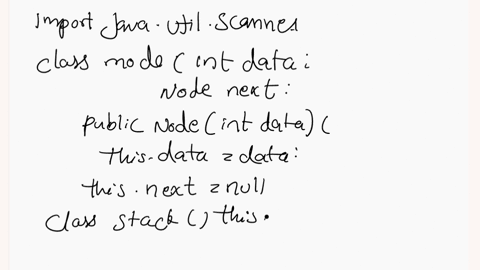 import java.util.Scannes
class mode ( int data :
Node next :
public Node ( int data ) (
this.data = data :
this.next = null
class stack () this.